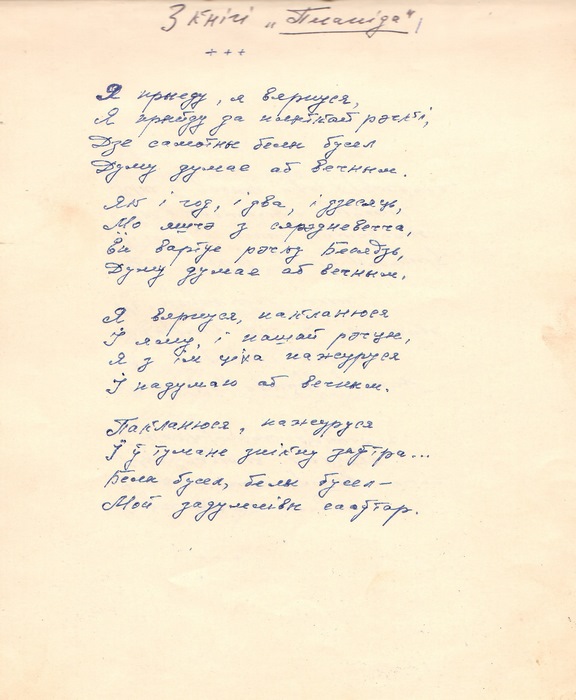 З кнігі „Планіда“,
+ + +
Я прыеду, я вярнуся,
Я прыйду да ціхай рэчкі,
Дзе самотны белы бусел
Думу думае аб вечным.
Як і год, і два, і дзесяць,
Мо яшчэ з сярэдневечча,
Ён вартуе рэчку Бесядзь,
Думу думае аб вечным.
Я вярнуся, пакланюся
І яму, і нашай рэчцы,
Я з ім ціха пажуруся
І падумаю аб вечным.
Пакланюся, пажуруся
І ў тумане знікну заўтра...
Белы бусел, белы бусел –
Мой задумлівы сааўтар.